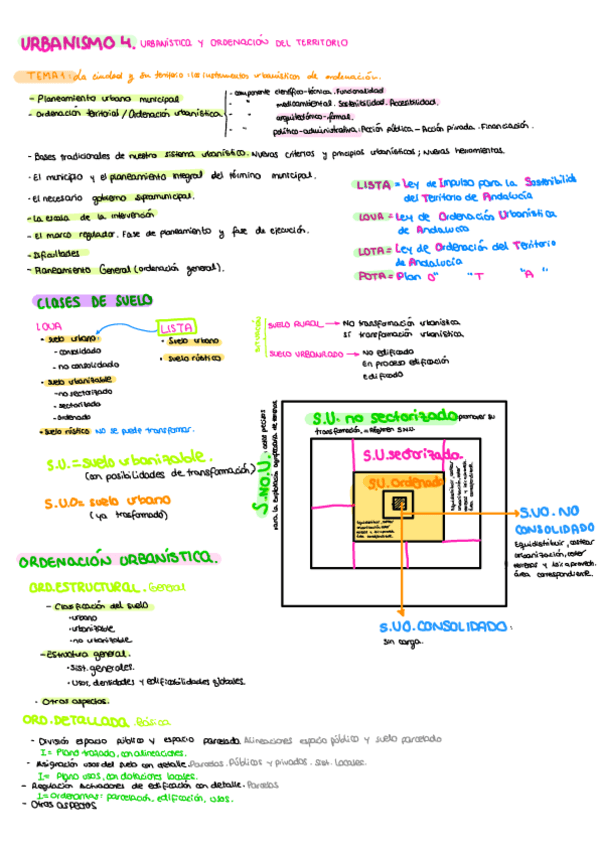 URBANISMO 4. URBANÍSTICA Y ORDENACIÓN DEL TERRITORIO
TEMA 1: La ciudad y su territorio: los instrumentos urbanísticos de ordenación.
- Planeamiento urbano municipal
- Ordenación territorial / Ordenación urbanística
- componente científico-técnica. Funcionalidad
- " medioambiental. Sostenibilidad. Accesibilidad.
- " arquitectónico-formal.
- " político-administrativa: Acción pública - Acción privada. Financiación.
- Bases tradicionales de nuestro sistema urbanístico. Nuevos criterios y principios urbanísticos; Nuevas herramientas.
- El municipio y el planeamiento integral del término municipal.
- El necesario gobierno supramunicipal.
- La escala de la intervención
- El marco regulador. Fase de planeamiento y fase de ejecución.
- Dificultades
- Planeamiento General (ordenación general).
LISTA = Ley de Impulso para la Sostenibilidad
del Territorio de Andalucía
LOUA = Ley de Ordenación Urbanística
de Andalucía
LOTA = Ley de Ordenación del Territorio
de Andalucía
POTA = Plan O" " T "A "
CLASES DE SUELO
LOUA
• Suelo urbano
- consolidado
- no consolidado
• Suelo urbanizable
- no sectorizado
- sectorizado
- ordenado
• Suelo rústico NO se puede transformar.
LISTA
• Suelo urbano
• Suelo rústico
SITUACIÓN
SUELO RURAL → No transformación urbanística
Sí transformación urbanística
SUELO URBANIZADO → No edificado
En proceso edificación
Edificado
S.U. = suelo urbanizable.
(con posibilidades de transformación)
S.U.O = suelo urbano
(ya trasformado)
S.NO.U.
para la explotación agropecuaria de terrenos
S.U. no sectorizado promover su
transformación. = Régimen S.N.U.
S.U. sectorizado.
S.U. Ordenado
S.UO. NO
CONSOLIDADO
Equidistribuir, costear
urbanización, ceder
terrenos y
área correspondiente.
S.UO. CONSOLIDADO:
sin carga.
ORDENACIÓN URBANÍSTICA.
ORD. ESTRUCTURAL. General
- Clasificación del suelo
• urbano
• urbanizable
• no urbanizable
- Estructura general.
• Sist. generales.
• Usos, densidades y edificabilidades globales.
• Otros aspectos.
ORD. DETALLADA. Básica
- División espacio público y espacio parcelado. Alineaciones espacio público y suelo parcelado
I = Plano trazado, con alineaciones.
- Asignación usos del suelo con detalle. Parcelas. Públicos y privados. Sist. Locales.
I = Plano usos, con dotaciones locales.
- Regulación actuaciones de edificación con detalle. Parcelas
I = Ordenanzas: parcelación, edificación, usos.
- Otros aspectos